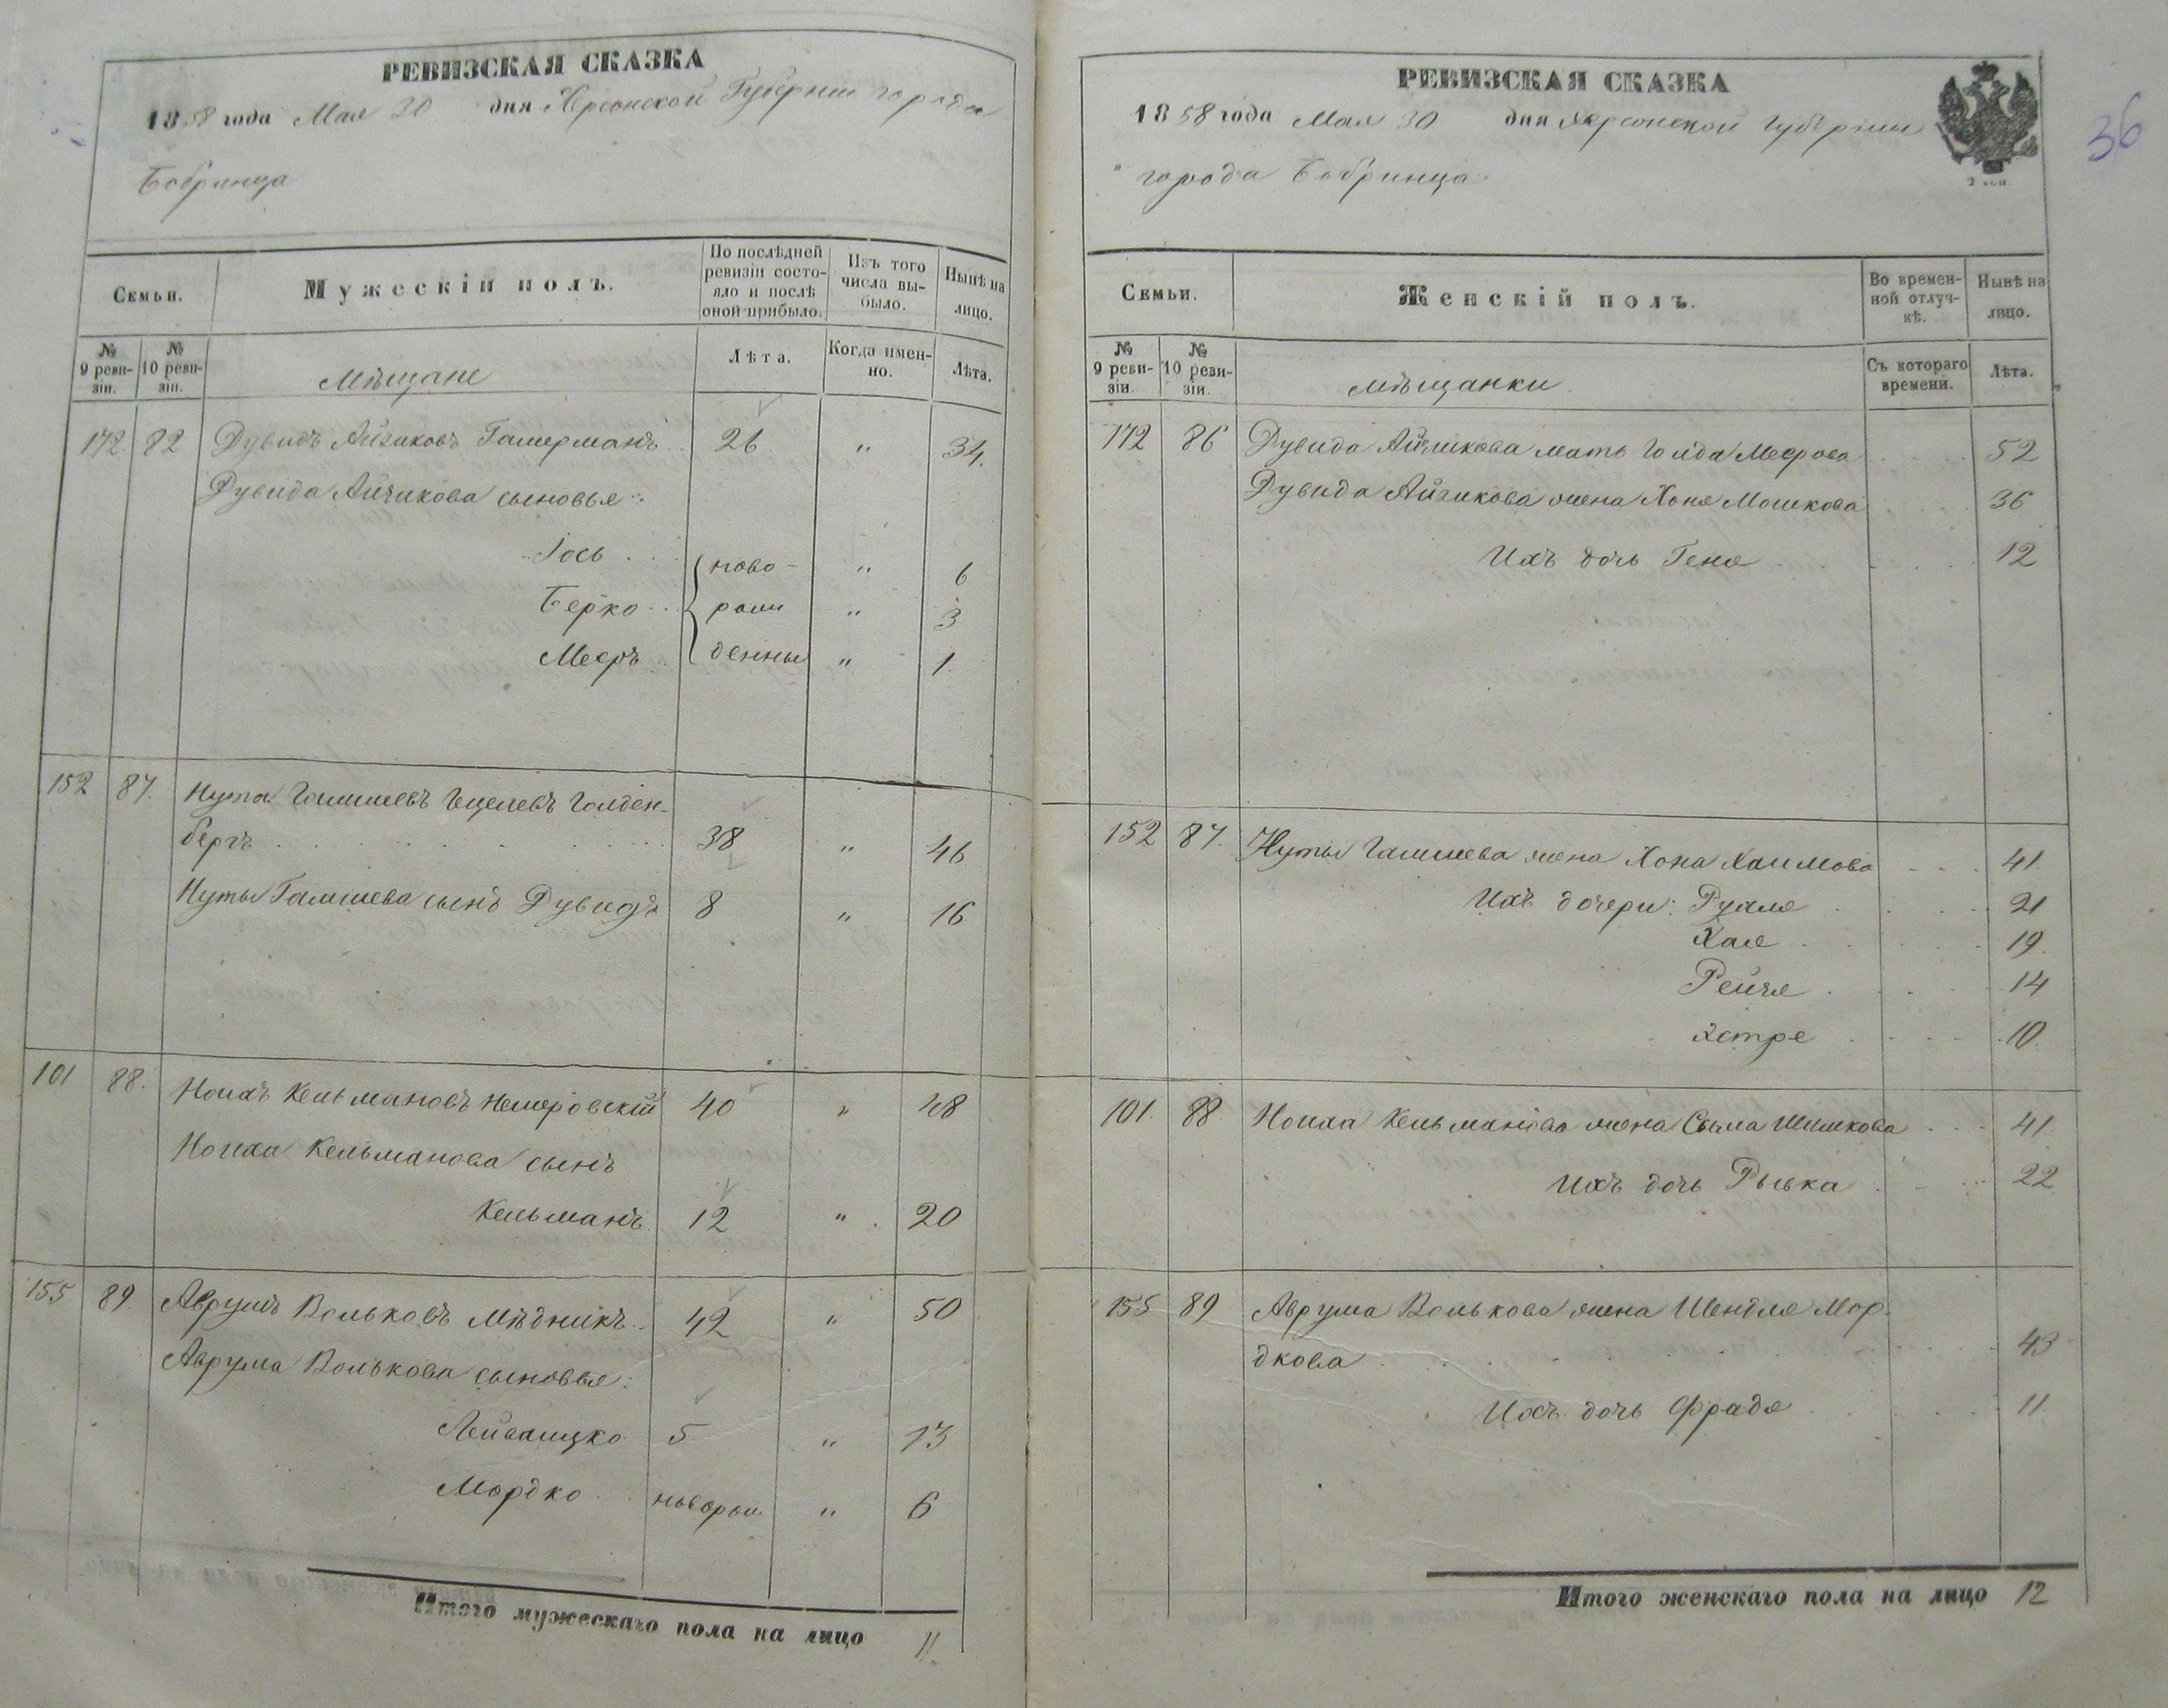 РЕВИЗСКАЯ СКАЗКА
1858 года Мая 30 дня Херсонской Губерніи города
Бобринца
Семьи.
Мужескій полъ.
По послѣдней ревизіи состояло и послѣ оной прибыло.
Изъ того числа выбыло.
Нынѣ на лицо.
№ 9 ревизіи.
№ 10 ревизіи.
Мѣщане
Лѣта.
Когда именно.
Лѣта.
172 82 Дувидъ Айзиковъ 26 " 34.
Дувида Айзикова сыновья:
Іось ново- " 6
Берко рож " 3
Мееръ денны " 1
152 87. Нута Гецелевъ Голден-
бергъ 38 " 46
Нуты сынъ Дувидъ 8 " 16
101 88. Ноихъ Кельмановъ Немеровскій 40 " 48
Ноиха Кельманова сынъ
Кельманъ 12 " 20
155 89. Аврумъ Вольковъ Мѣдникъ 42 " 50
Аврума Волькова сыновья:
Лейвацко 5 " 13
Мордко новорож " 6
Итого мужескаго пола на лицо 11.
РЕВИЗСКАЯ СКАЗКА
36
1858 года Мая 30 дня Херсонской Губерніи
города Бобринца
2 коп.
Семьи.
Женскій полъ.
Во временной отлучкѣ.
Нынѣ на лицо.
№ 9 ревизіи.
№ 10 ревизіи.
мѣщанки
Съ котораго времени.
Лѣта.
172 86 Дувида Айзикова мать Голда Меерова 52
Дувида Айзикова жена Хоня Мошкова 36
Ихъ дочь Геня 12
152 87. Нуты жена Хона Хаимова 41
Ихъ дочери: Рухля 21
Хая 19
Рейзя 14
Эстре 10
101. 88. Ноиха Кельманова жена Сыма Шимкова 41
Ихъ дочь Рывка 22
155 89 Аврума Волькова жена Шендля Мор-
дкова 43
Ихъ дочь Фрадя 11
Итого женскаго пола на лицо 12